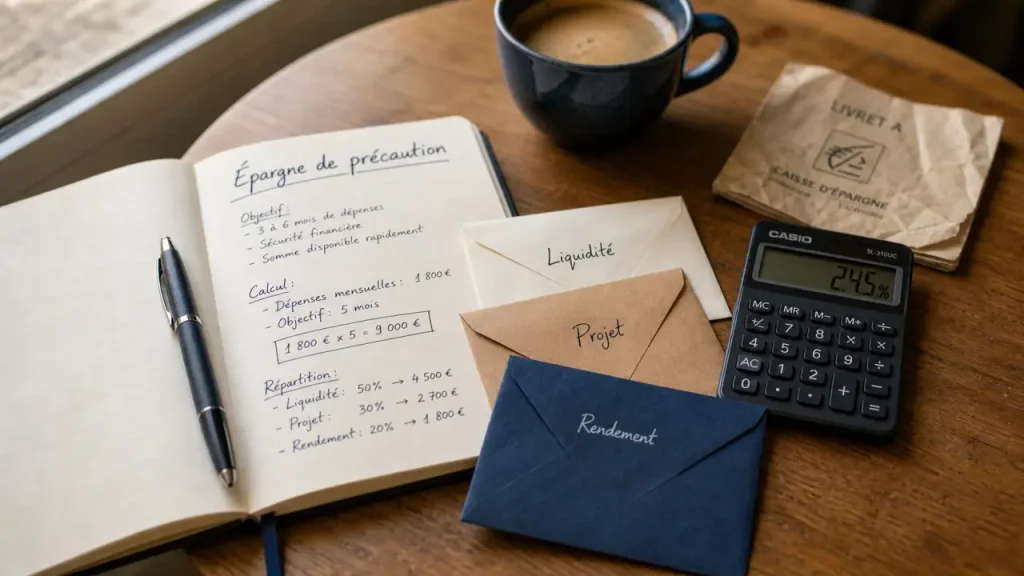 Épargne de précaution
Objectif :
- 3 à 6 mois de dépenses
- Sécurité financière
- Somme disponible rapidement
Calcul :
- Dépenses mensuelles : 1 800 €
- Objectif : 5 mois
1 800 € x 5 = 9 000 €
Répartition :
- Liquidité : 50% → 4 500 €
- Projet : 30% → 2 700 €
- Rendement : 20% → 1 800 €
Liquidité
Projet
Rendement
LIVRET A
CAISSE D'ÉPARGNE
CASIO
SL-310UC
2.45%
MC MR M− M+ ÷
7 8 9 ×
4 5 6 −
AC 1 2 +
0 · · =